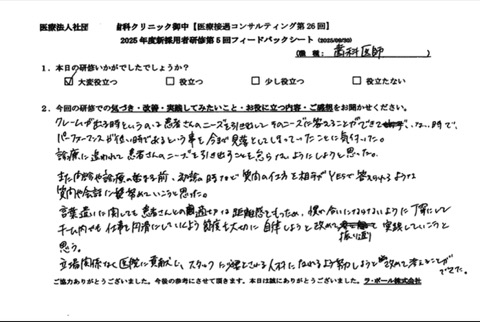 医療法人社団 歯科クリニック御中【医療接遇コンサルティング第26回】
2025年度新採用者研修第5回フィードバックシート (2025/09/30)
(職種: 歯科医師 )
1.本日の研修いかがでしたでしょうか?
☑大変役立つ □役立つ □少し役立つ □役立たない
2.今回の研修での気づき・改善・実践してみたいこと・お役に立つ内容・ご感想をお聞かせください。
クレームが出る時というのは患者さんのニーズを引き出してそのニーズに答えることができて ない時で、
パフォーマンスが低い時で出るという事を今まで見落としてしまっていたことに気付いた。
診療に追われて患者さんのニーズを引き出すことを怠らないようにしようと思った。
また 診療の 前、 時など質問の仕方を相手がYESで答えられるような
質問や会話に 努めていこうと思った。
言葉遣いに関しても患者さんとの適切な距離感をもったり、 合いにならないように丁寧にして
チーム内でも仕事を円滑にしていけるよう 大切に自律しようと改めて 振り返り 実践していこうと
思う。
立場関係なく医院に貢献し、スタッフに必要とされる人材になれるよう努力しようと改めて考えることが
できた。
ご協力ありがとうございました。今後の参考にさせて頂きます。本日は誠にありがとうございました。ラ・ポール株式会社